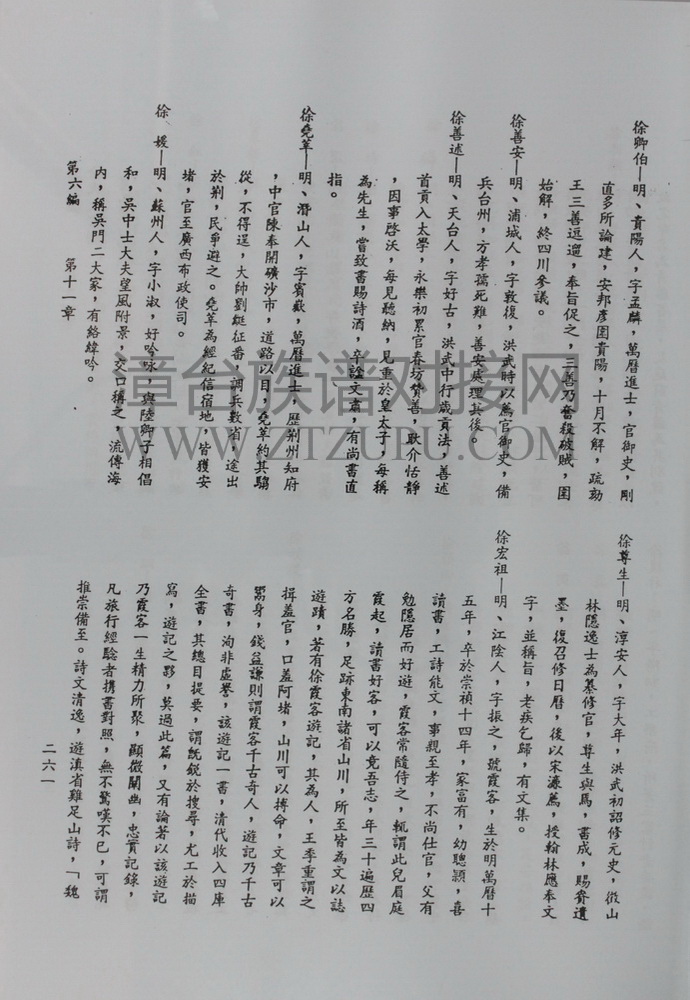 徐卿伯—明、貴陽人，字孟麟，萬曆進士，官御史，剛
直多所論建，安邦彥圍貴陽，十月不解，疏劾
王三善逗遛，奉旨促之，三善乃奮殺破賊，圍
始解，終四川參議。
徐善安—明、浦城人，字敦復，洪武時以薦官御史，備
兵台州，方孝孺死難，善安處理其後。
徐善述—明、天台人，字好古，洪武中行歲貢法，善述
首貢入太學，永樂初累官春坊贊善，耿介恬靜
，因事啓沃，每見聽納，見重於皇太子，每稱
為先生，嘗致書賜詩酒，卒諡文肅，有尚書直
指。
徐堯莘—明、潛山人，字賓嶽，萬曆進士，歷荊州知府
，中官陳奉開礦沙市，道路以目，堯莘約其騶
從，不得逞，大帥劉綎征番，調兵數省，途出
於荊，民爭避之。堯莘為經紀信宿地，皆獲安
堵，官至廣西布政使司。
徐　媛—明、蘇州人，字小淑，好吟咏，與陸卿子相倡
和，吳中士大夫望風附景，交口稱之，流傳海
內，稱吳門二大家，有絡緯吟。
第六編　第十一章
徐尊生—明、淳安人，字大年，洪武初詔修元史，徵山
林隱逸士為纂修官，尊生與焉，書成，賜賚遺
墨，復召修日曆，後以宋濂薦，授翰林應奉文
字，並稱旨，老疾乞歸，有文集。
徐宏祖—明、江陰人，字振之，號霞客，生於明萬曆十
五年，卒於崇禎十四年，家富有，幼聰穎，喜
請書，工詩能文，事親至孝，不尚仕官，父有
勉隱居而好遊，霞客常隨侍之，輒謂此兒眉庭
霞起，請書好客，可以竟吾志，年三十遍歷四
方名勝，足跡東南諸省山川，所至皆為文以誌
遊蹟，著有徐霞客遊記，其為人，王季重謂之
揖蓋官，口羞阿堵，山川可以搏命，文章可以
鬻身，錢益謙則謂霞客千古奇人，遊記乃千古
奇書，洵非虛譽，該遊記一書，清代收入四庫
全書，其總目提要，謂旣銳於搜尋，尤工於描
寫，遊記之夥，莫過此篇，又有論著以該遊記
乃霞客一生精力所聚，顯微闡幽，忠實記錄，
凡旅行經驗者携書對照，無不驚嘆不已，可謂
推崇備至。詩文清逸，遊滇省雞足山詩，「魏
二六一
漳台族谱对接网
WWW.ZTZUPU.COM